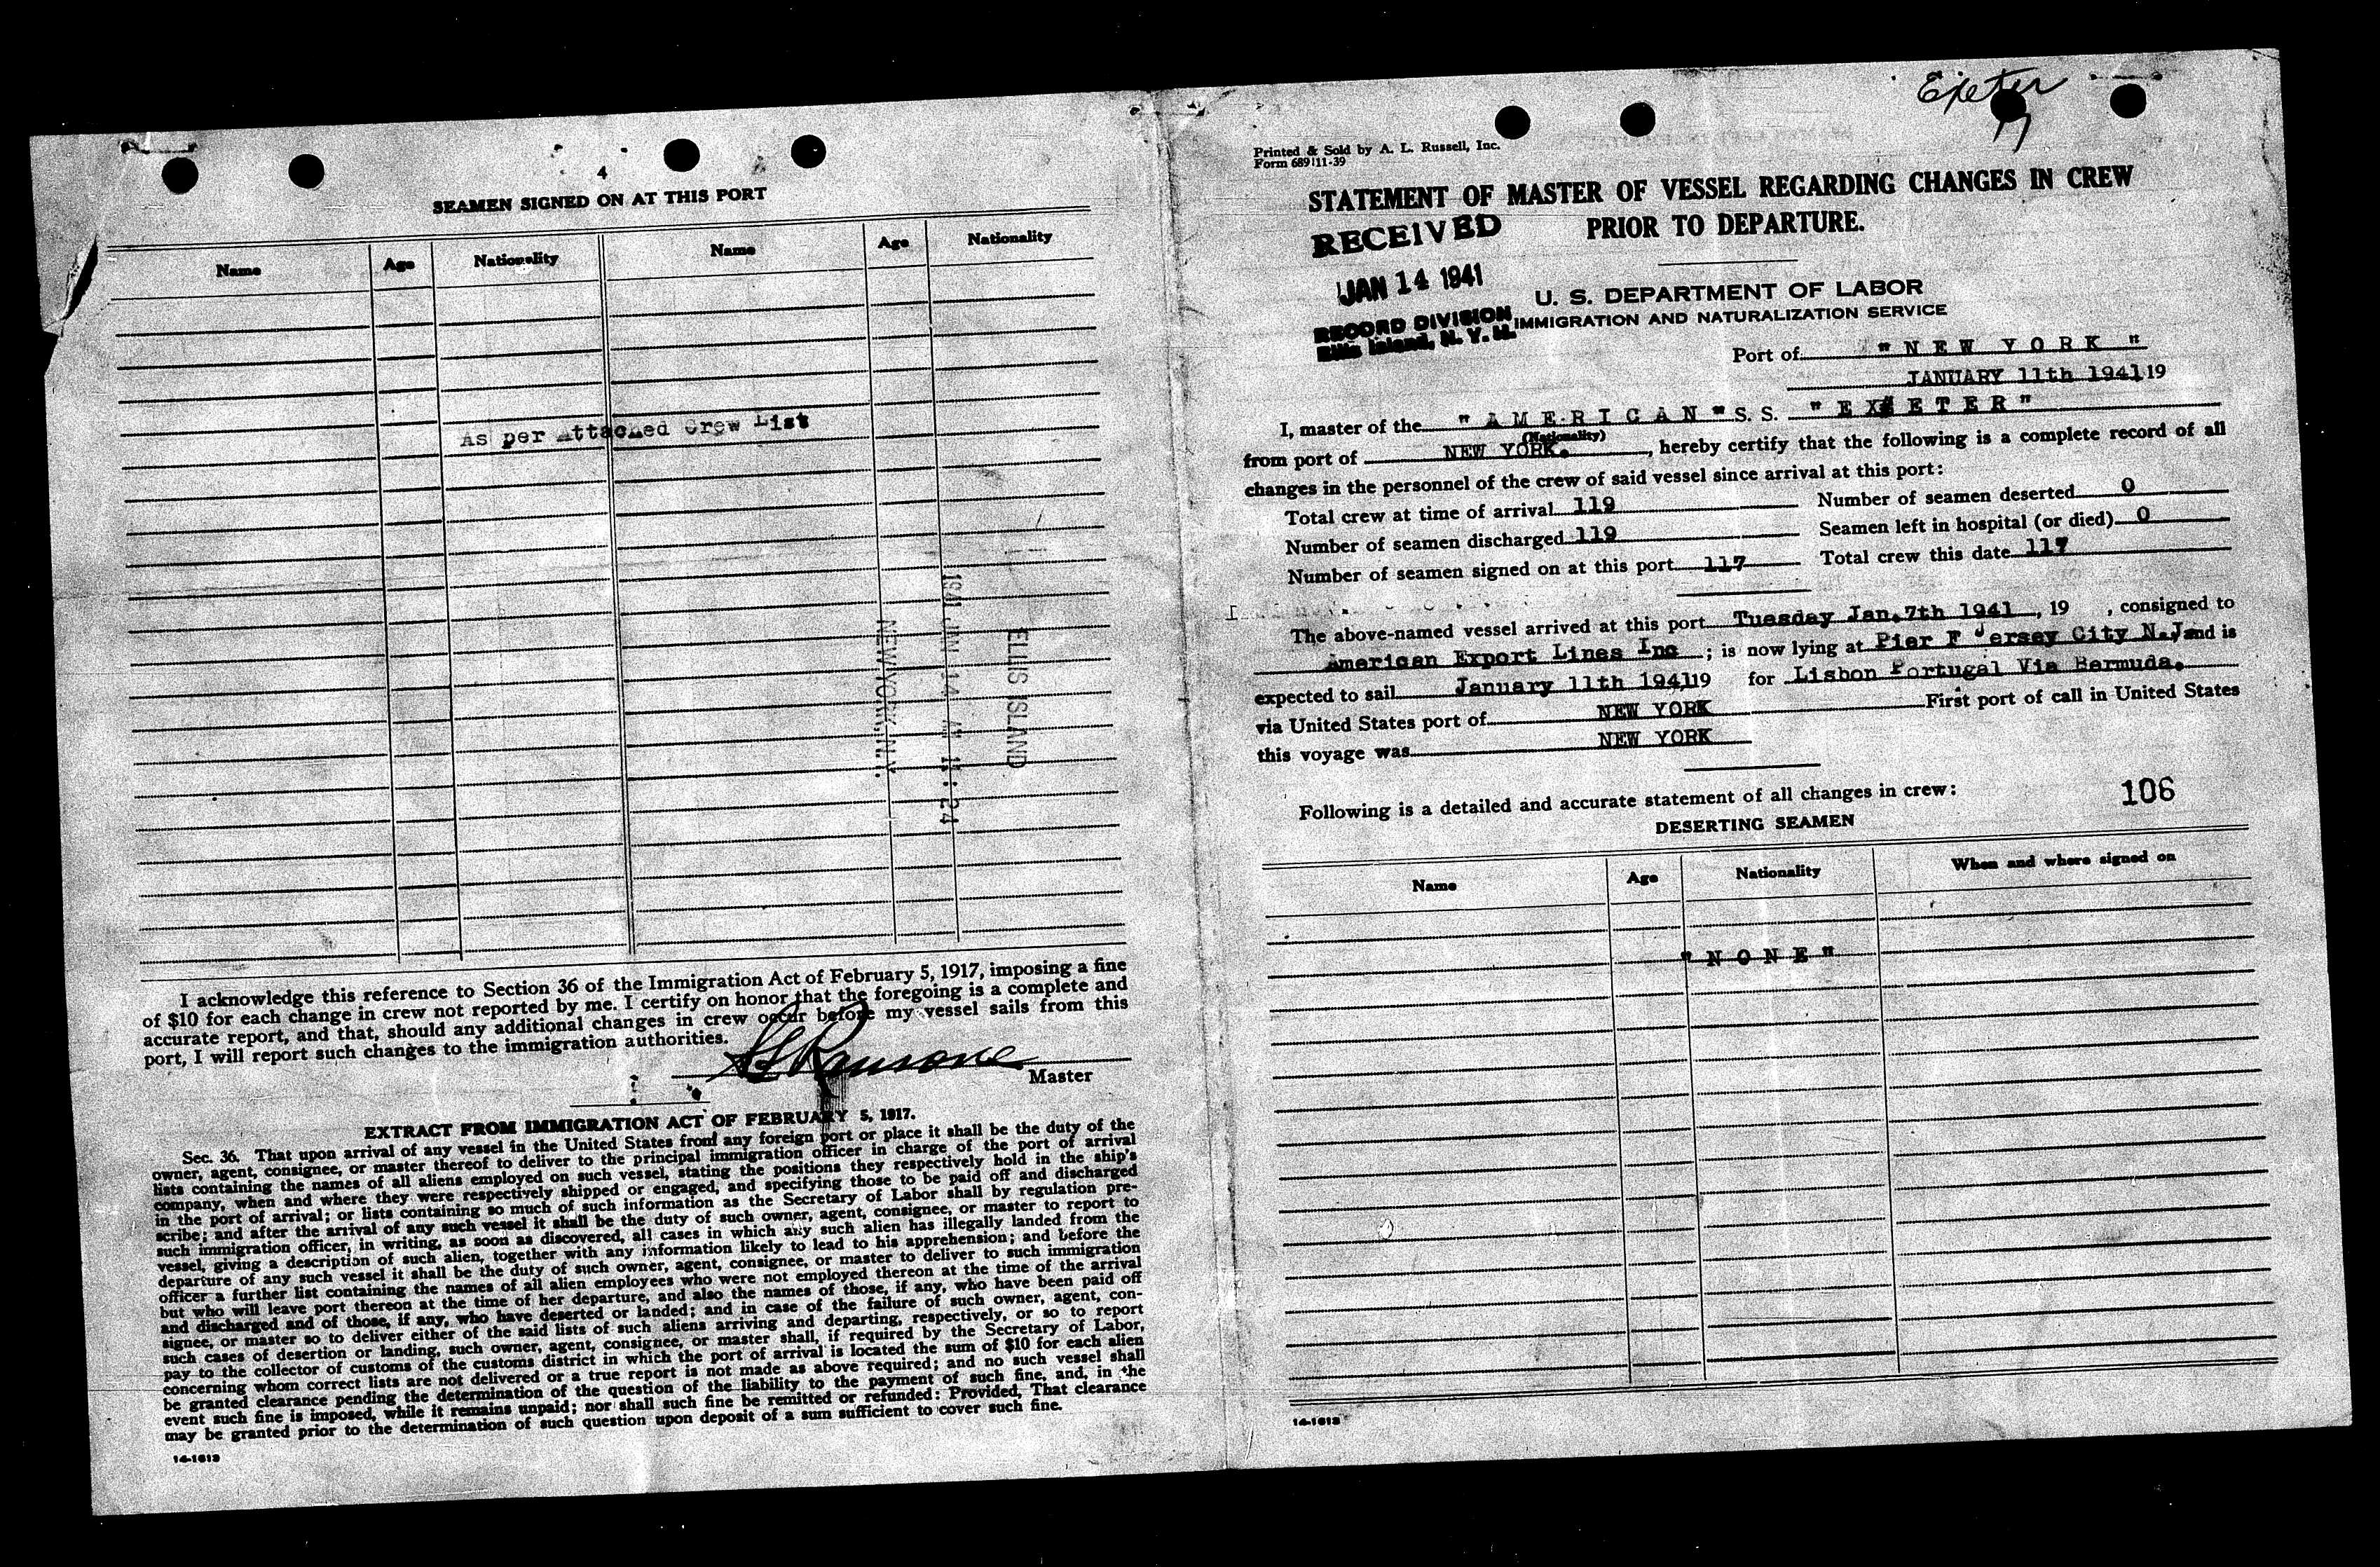 4
SEAMEN SIGNED ON AT THIS PORT
Name Age Nationality Name Age Nationality
As per Attached Crew List
ELLIS ISLAND
1941 JAN 14 AM 11:24
NEW YORK, N.Y.
I acknowledge this reference to Section 36 of the Immigration Act of February 5, 1917, imposing a fine
of $10 for each change in crew not reported by me. I certify on honor that the foregoing is a complete and
accurate report, and that, should any additional changes in crew occur before my vessel sails from this
port, I will report such changes to the immigration authorities.
Ransone
Master
EXTRACT FROM IMMIGRATION ACT OF FEBRUARY 5, 1917.
Sec. 36. That upon arrival of any vessel in the United States from any foreign port or place it shall be the duty of the
owner, agent, consignee, or master thereof to deliver to the principal immigration officer in charge of the port of arrival
lists containing the names of all aliens employed on such vessel, stating the positions they respectively hold in the ship's
company, when and where they were respectively shipped or engaged, and specifying those to be paid off and discharged
in the port of arrival; or lists containing so much of such information as the Secretary of Labor shall by regulation pre-
scribe; and after the arrival of any such vessel it shall be the duty of such owner, agent, consignee, or master to report to
such immigration officer, in writing, as soon as discovered, all cases in which any such alien has illegally landed from the
vessel, giving a description of such alien, together with any information likely to lead to his apprehension; and before the
departure of any such vessel it shall be the duty of such owner, agent, consignee, or master to deliver to such immigration
officer a further list containing the names of all alien employees who were not employed thereon at the time of the arrival
but who will leave port thereon at the time of her departure, and also the names of those, if any, who have been paid off
and discharged and of those, if any, who have deserted or landed; and in case of the failure of such owner, agent, con-
signee, or master so to deliver either of the said lists of such aliens arriving and departing, respectively, or so to report
such cases of desertion or landing, such owner, agent, consignee, or master shall, if required by the Secretary of Labor,
pay to the collector of customs of the customs district in which the port of arrival is located the sum of $10 for each alien
concerning whom correct lists are not delivered or a true report is not made as above required; and no such vessel shall
be granted clearance pending the determination of the question of the liability to the payment of such fine, and, in the
event such fine is imposed, while it remains unpaid; nor shall such fine be remitted or refunded: Provided, That clearance
may be granted prior to the determination of such question upon deposit of a sum sufficient to cover such fine.
14-1613
Exeter
Printed & Sold by A. L. Russell, Inc.
Form 689 11-39
STATEMENT OF MASTER OF VESSEL REGARDING CHANGES IN CREW
PRIOR TO DEPARTURE.
RECEIVED
JAN 14 1941
RECORD DIVISION
Ellis Island, N. Y. H.
U. S. DEPARTMENT OF LABOR
IMMIGRATION AND NATURALIZATION SERVICE
Port of " N E W Y O R K "
JANUARY 11th 1941 19
I, master of the " A M E R I C A N " S. S. " E X E T E R "
(Nationality)
from port of NEW YORK. , hereby certify that the following is a complete record of all
changes in the personnel of the crew of said vessel since arrival at this port:
Total crew at time of arrival 119 Number of seamen deserted 0
Number of seamen discharged 119 Seamen left in hospital (or died) 0
Number of seamen signed on at this port 117 Total crew this date 117
The above-named vessel arrived at this port Tuesday Jan. 7th 1941 , 19 , consigned to
American Export Lines Inc ; is now lying at Pier F Jersey City N.J. and is
expected to sail January 11th 1941 19 for Lisbon Portugal Via Bermuda.
via United States port of NEW YORK First port of call in United States
this voyage was NEW YORK
Following is a detailed and accurate statement of all changes in crew:
106
DESERTING SEAMEN
Name Age Nationality When and where signed on
" N O N E "
14-1613